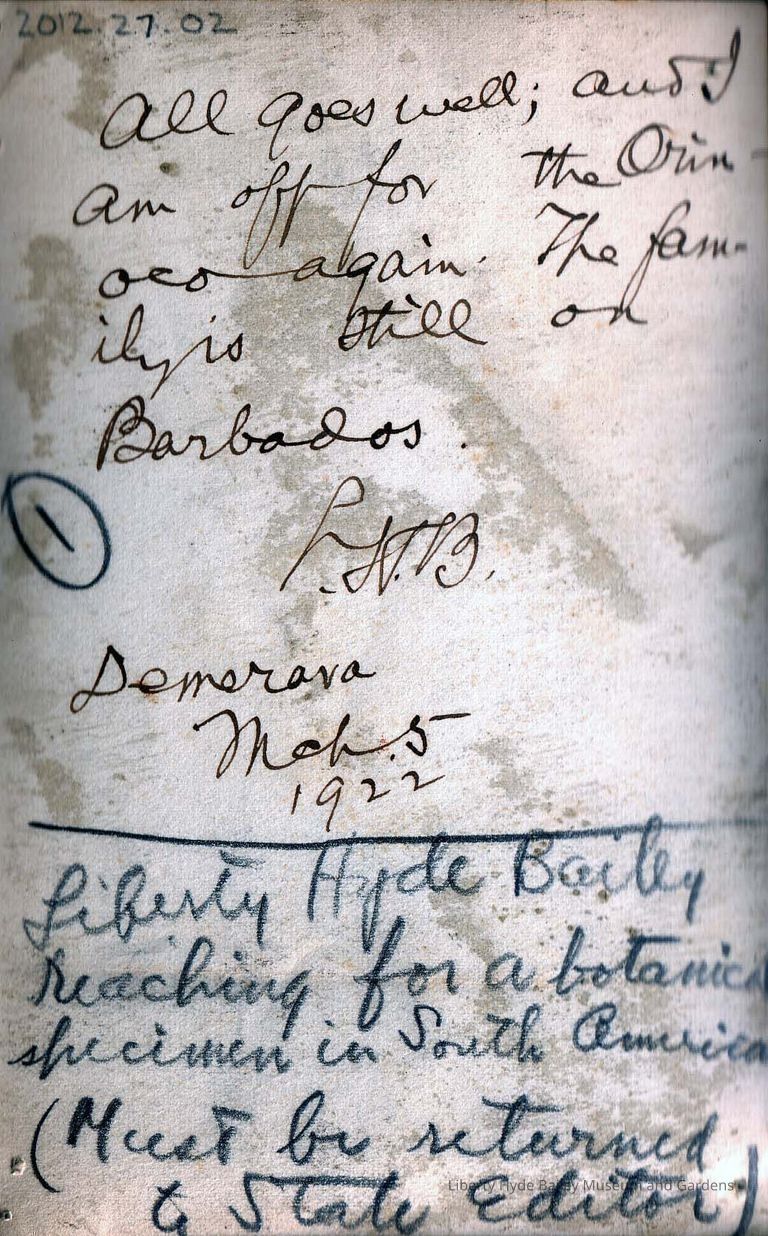 2012.27.02
All goes well; and I
am off for the Orin-
oco again. The fam-
ily is still on
Barbados.
1
L.H.B.
Demerara
Mch. 5
1922
Liberty Hyde Bailey
reaching for a botanical
specimen in South America
(Must be returned
to State Editor)
Liberty Hyde Bailey Museum and Gardens